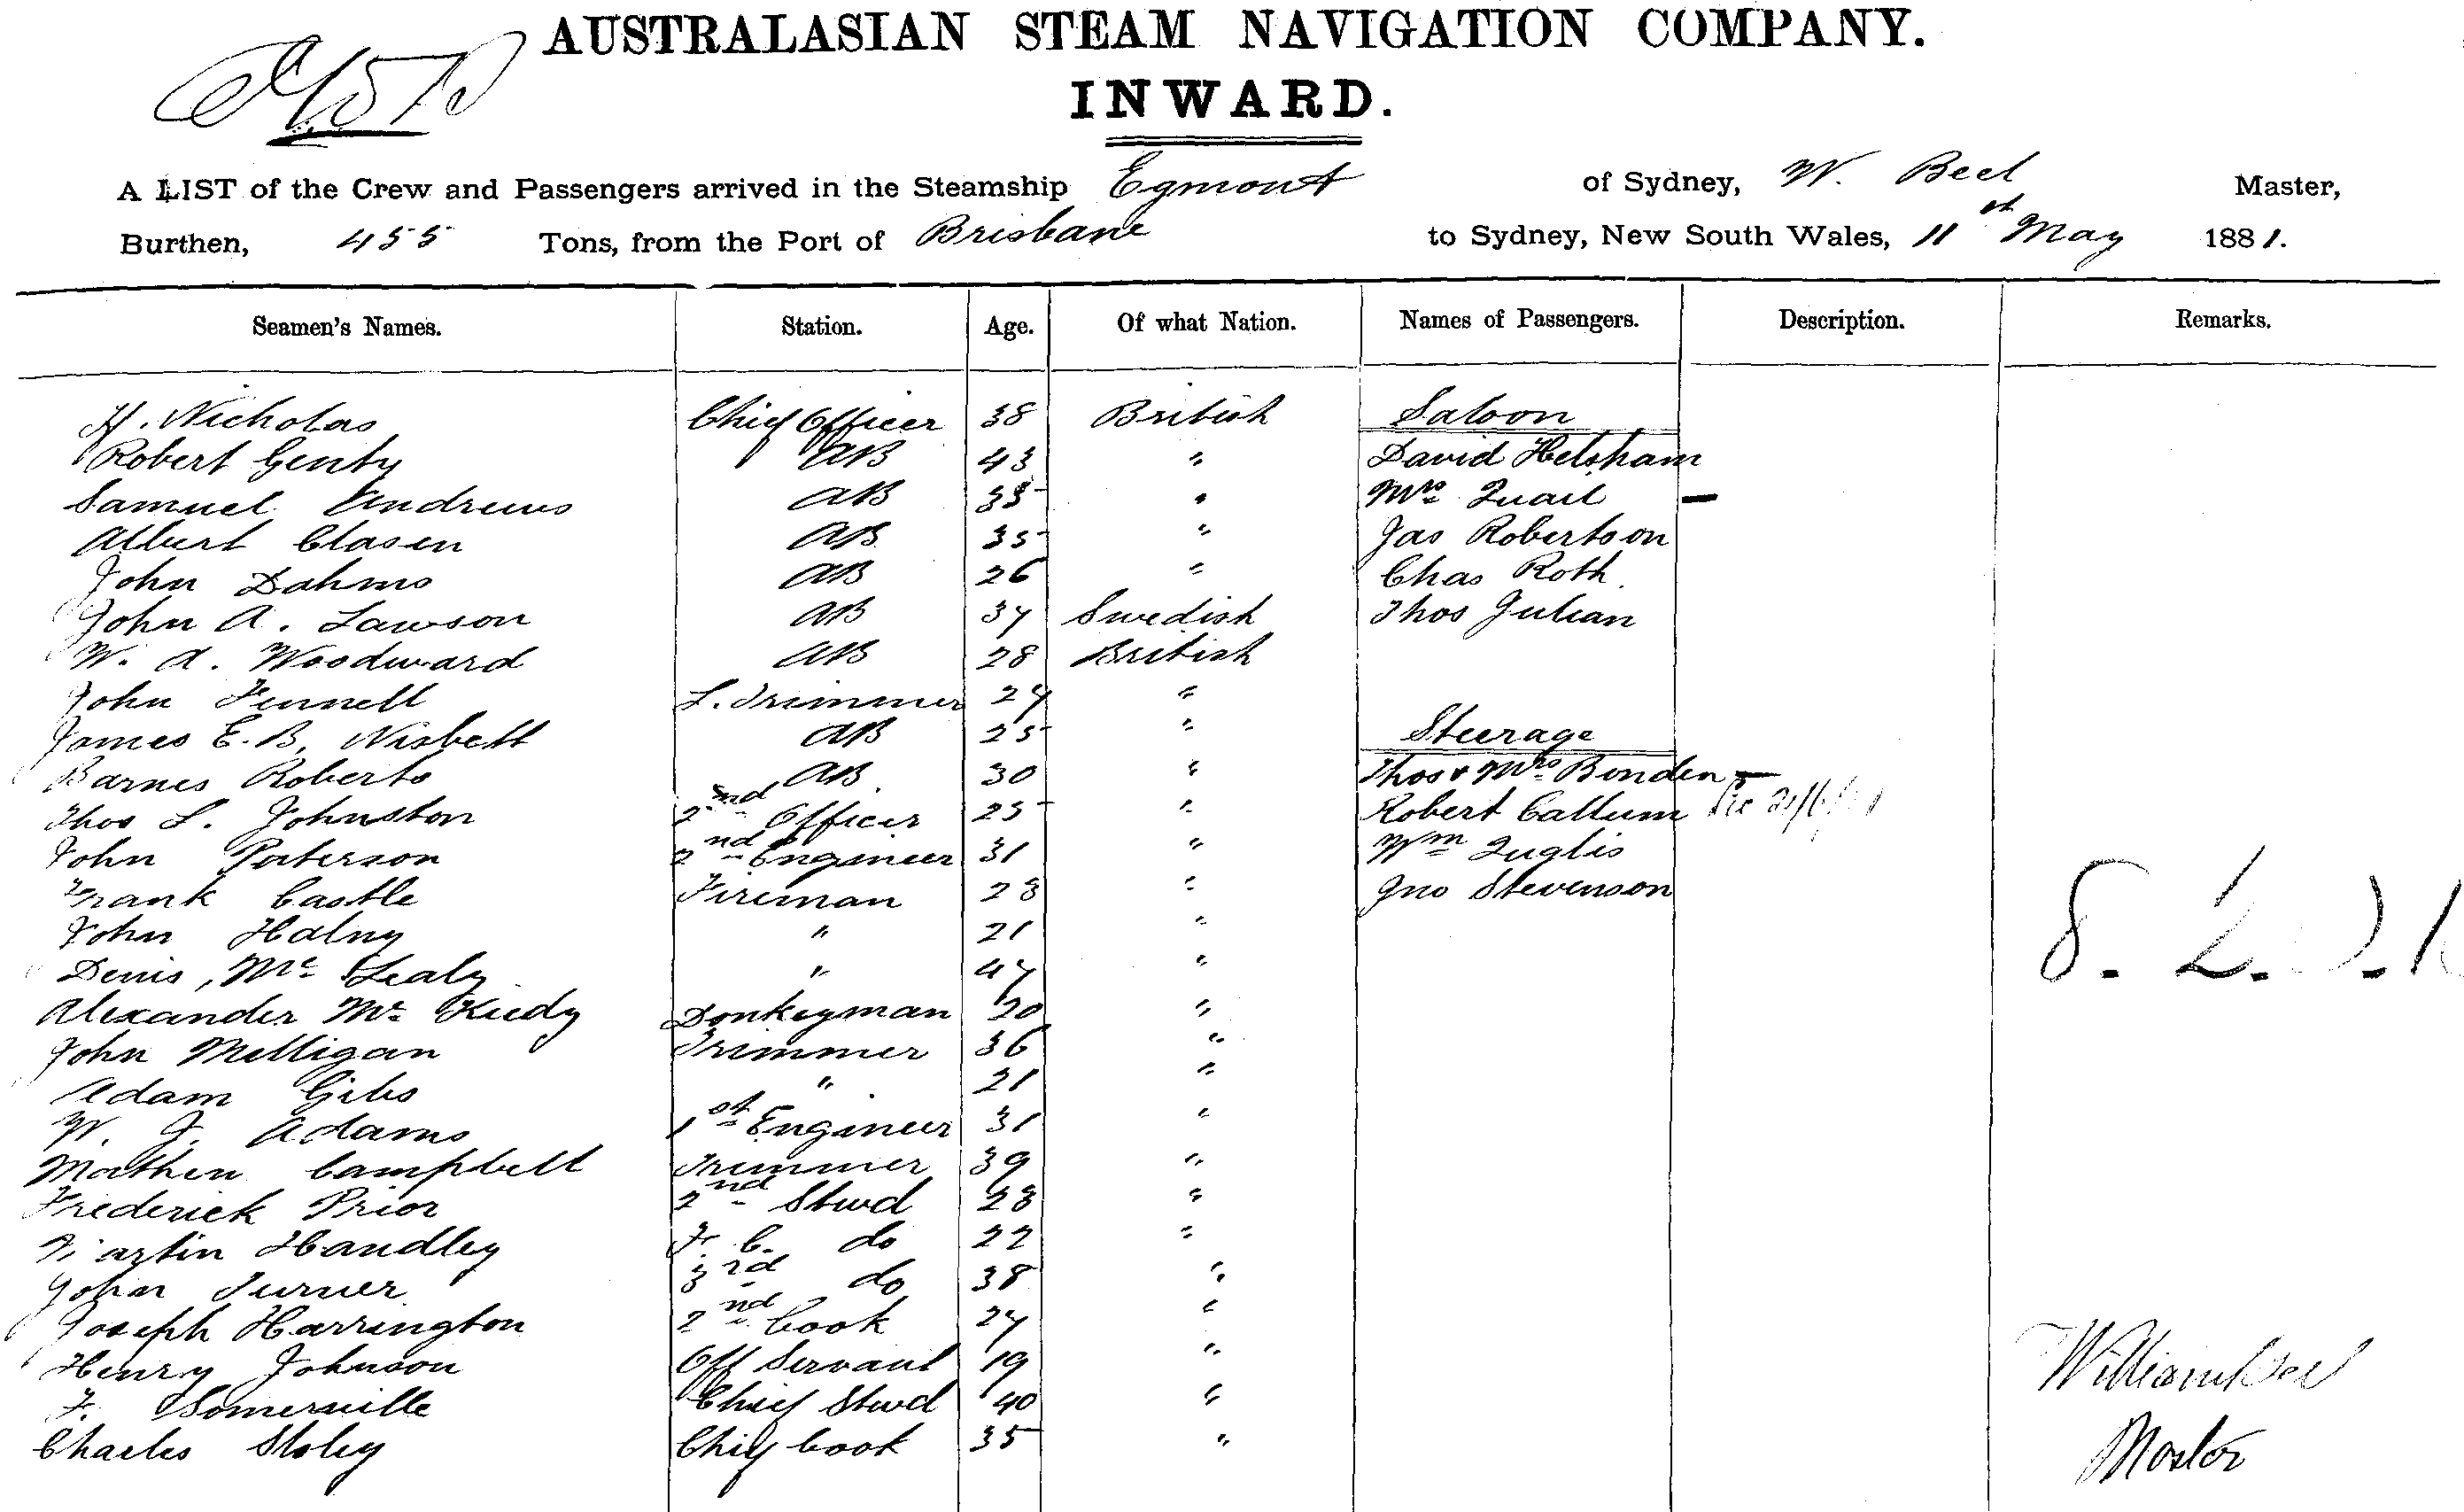 AUSTRALASIAN STEAM NAVIGATION COMPANY.
INWARD.
A LIST of the Crew and Passengers arrived in the Steamship Egmont of Sydney, W. Beel Master,
Burthen, 455 Tons, from the Port of Brisbane to Sydney, New South Wales, 11th May 1881.
Seamen's Names. Station. Age. Of what Nation. Names of Passengers. Description. Remarks.
H. Nicholas Chief Officer 38 British Saloon
Robert Genty AB 43 " David Helsham
Samuel Andrews AB 35 " Mrs Quail —
Albert Clasen AB 35 " Jas Robertson
John Dahms AB 26 " Chas Roth
John A. Lawson AB 37 Swedish Thos Julian
W. A. Woodward AB 28 British
John Fennell L. Trimmer 27 "
James E. B. Nisbett AB 25 " Steerage
Barnes Roberts AB 30 " Thos & Mrs Bonden —
Thos L. Johnston 2nd Officer 25 " Robert Callum
John Paterson 2nd Engineer 31 " Wm Inglis
Frank Castle Fireman 23 " Jno Stevenson
John Halny " 21 "
Denis, Mc Lealy " 47 "
Alexander Mc Kudy Donkeyman 20 "
John Milligan Trimmer 36 "
Adam Gibs " 21 "
W. J. Adams 1st Engineer 31 "
Mathew Campbell Trimmer 39 "
Frederick Prior 2nd Stwd 23 "
Martin Handley F. C. do 22 "
John Turner 3rd do 38 "
Joseph Harrington 2nd Cook 27 "
Henry Johnson Off Servant 19 "
F. Somerville Chief Stwd 40 "
Charles Stoley Chief Cook 35 "
William Beel
Master